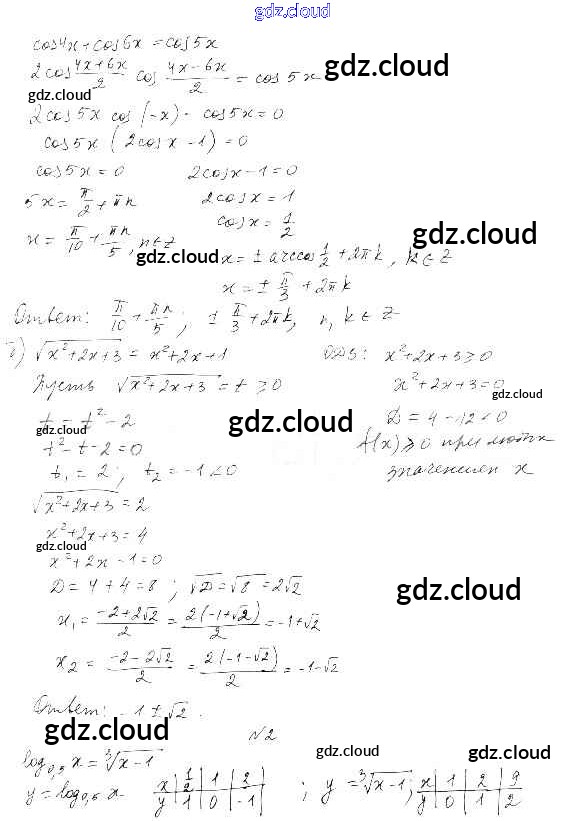 gdz.cloud
cos4x + cos6x = cos5x
2cos (4x+6x)/2 cos (4x-6x)/2 = cos5x
gdz.cloud
gdz.cloud
2cos5x cos(-x) - cos5x = 0
cos5x (2cosx - 1) = 0
cos5x = 0 2cosx - 1 = 0
5x = π/2 + πn 2cosx = 1
x = π/10 + πn/5, n∈Z cosx = 1/2
gdz.cloud
gdz.cloud
x = ± arccos 1/2 + 2πk, k∈Z
x = ± π/3 + 2πk
Ответ: π/10 + πn/5; ± π/3 + 2πk, n, k ∈ Z
б) √(x²+2x+3) = x²+2x+1 ОДЗ: x²+2x+3≥0
Пусть √(x²+2x+3) = t ≥ 0 x²+2x+3=0
gdz.cloud
t = t² - 2 D = 4 - 12 < 0
gdz.cloud
gdz.cloud
t² - t - 2 = 0 f(x) ≥ 0 при любых
t₁ = 2; t₂ = -1 < 0 значениях x
√(x²+2x+3) = 2
x²+2x+3 = 4
gdz.cloud
x²+2x-1=0
D = 4 + 4 = 8; √D = √8 = 2√2
gdz.cloud
x₁ = (-2+2√2)/2 = 2(-1+√2)/2 = -1+√2
x₂ = (-2-2√2)/2 = 2(-1-√2)/2 = -1-√2
Ответ: -1 ± √2.
gdz.cloud
N2
log₀,₅ x = ∛(x-1)
gdz.cloud
gdz.cloud
y = log₀,₅ x x | 1/2 | 1 | 2 ; y = ∛(x-1); x | 1 | 2 | 9
y | 1 | 0 | -1 y | 0 | 1 | 2
gdz.cloud